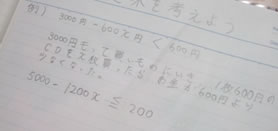 を考えよう
例) 3000円 - 600x円 < 600円
3000円もって買いものにいき、1枚600円の
CDをx枚買ったら、お金が600円より
少なくなった。
5000 - 1200x ≦ 200